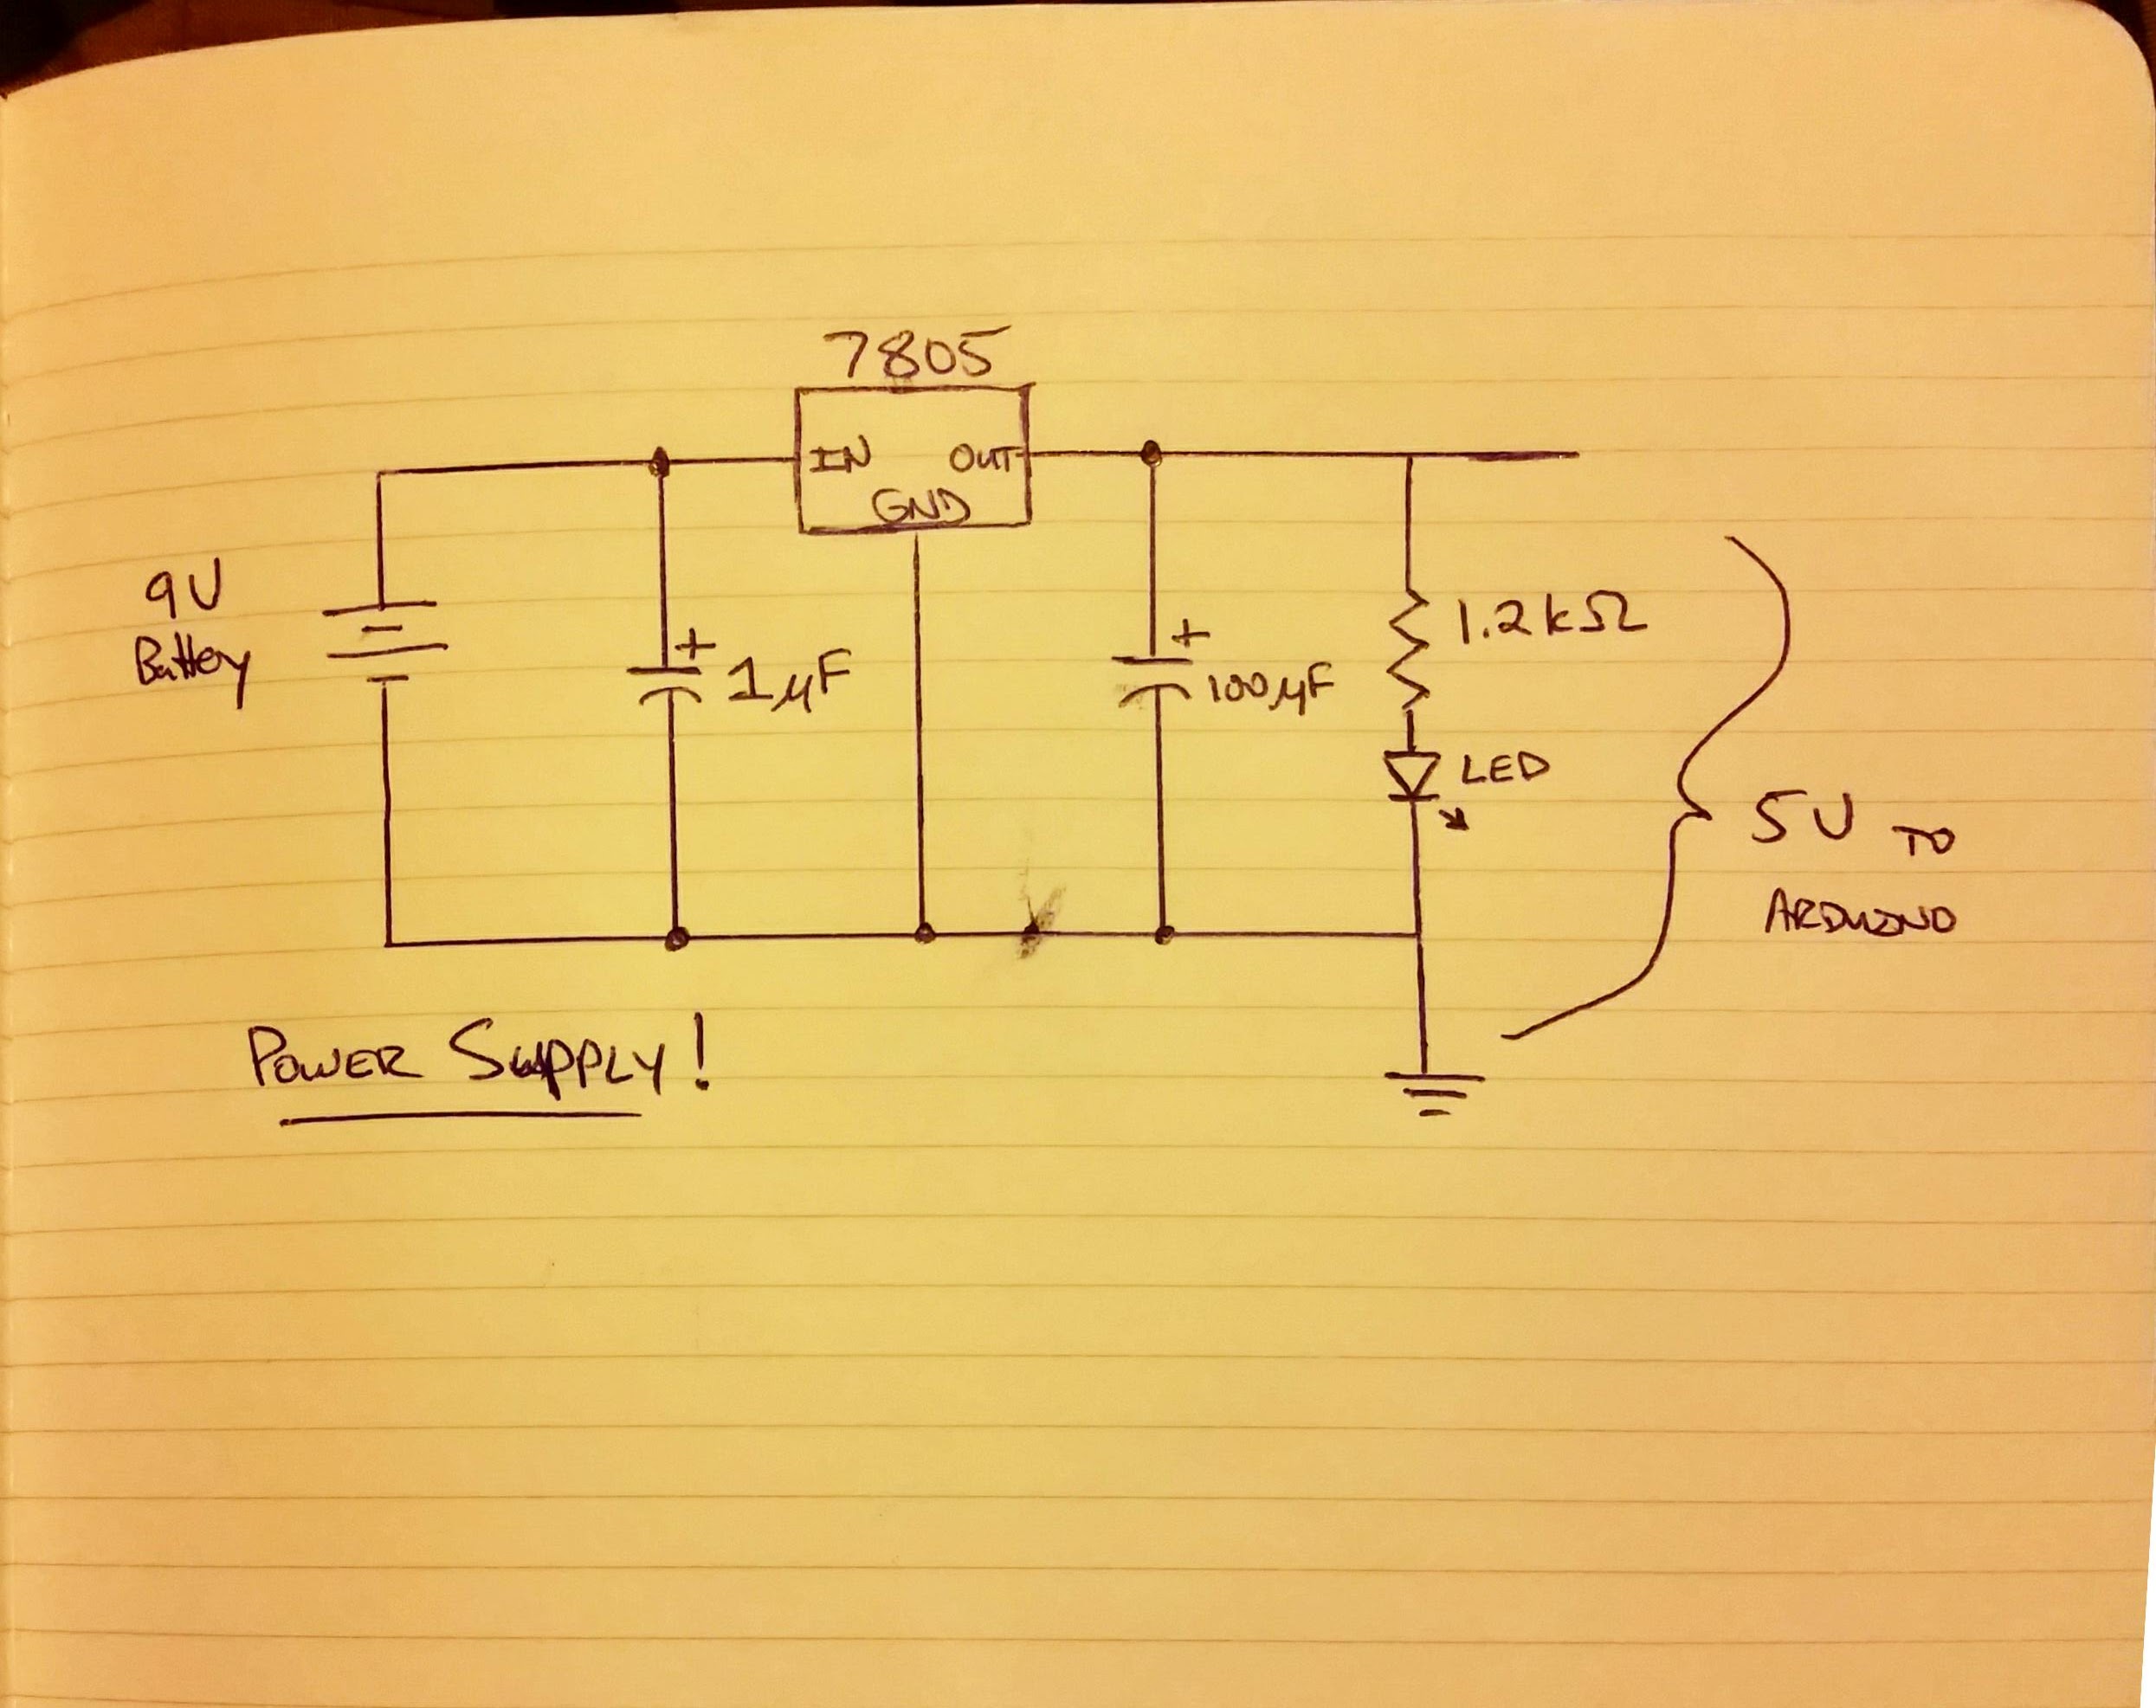 7805
IN OUT
GND
9V
Battery
+
1µF
+
100µF
1.2kΩ
LED
5V TO
ARDUINO
POWER SUPPLY!